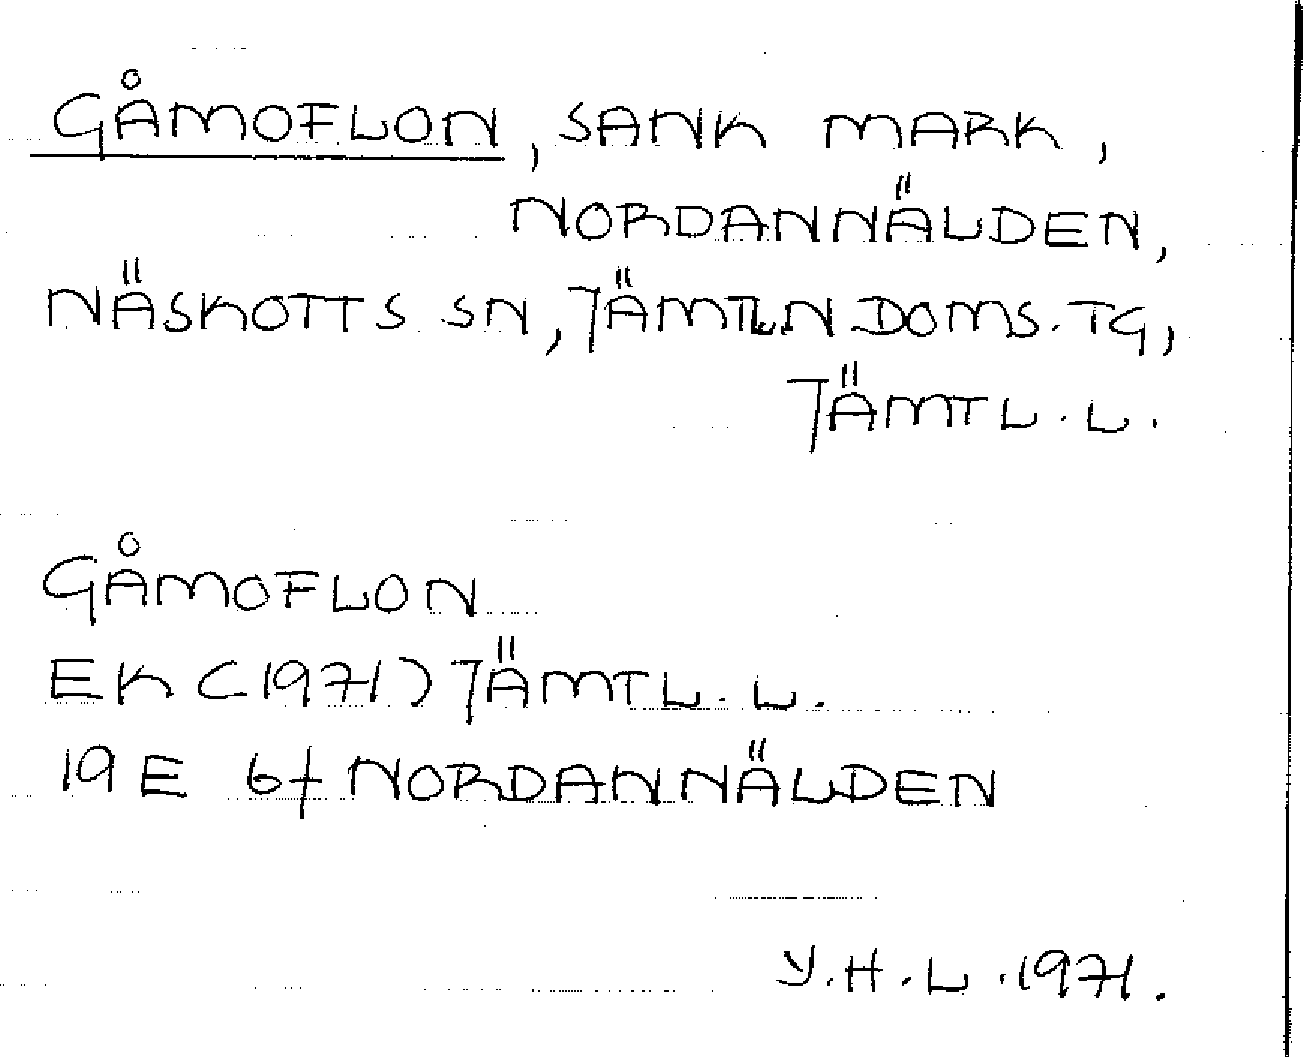 GÅMOFLON, SANK MARK,
NORDANNÄLDEN,
NÄSKOTTS SN, JÄMTLN DOMS. TG,
JÄMTL. L.
GÅMOFLON
EK (1971) JÄMTL. L.
19 E 6f NORDANNÄLDEN
Y. H. L. 1971.